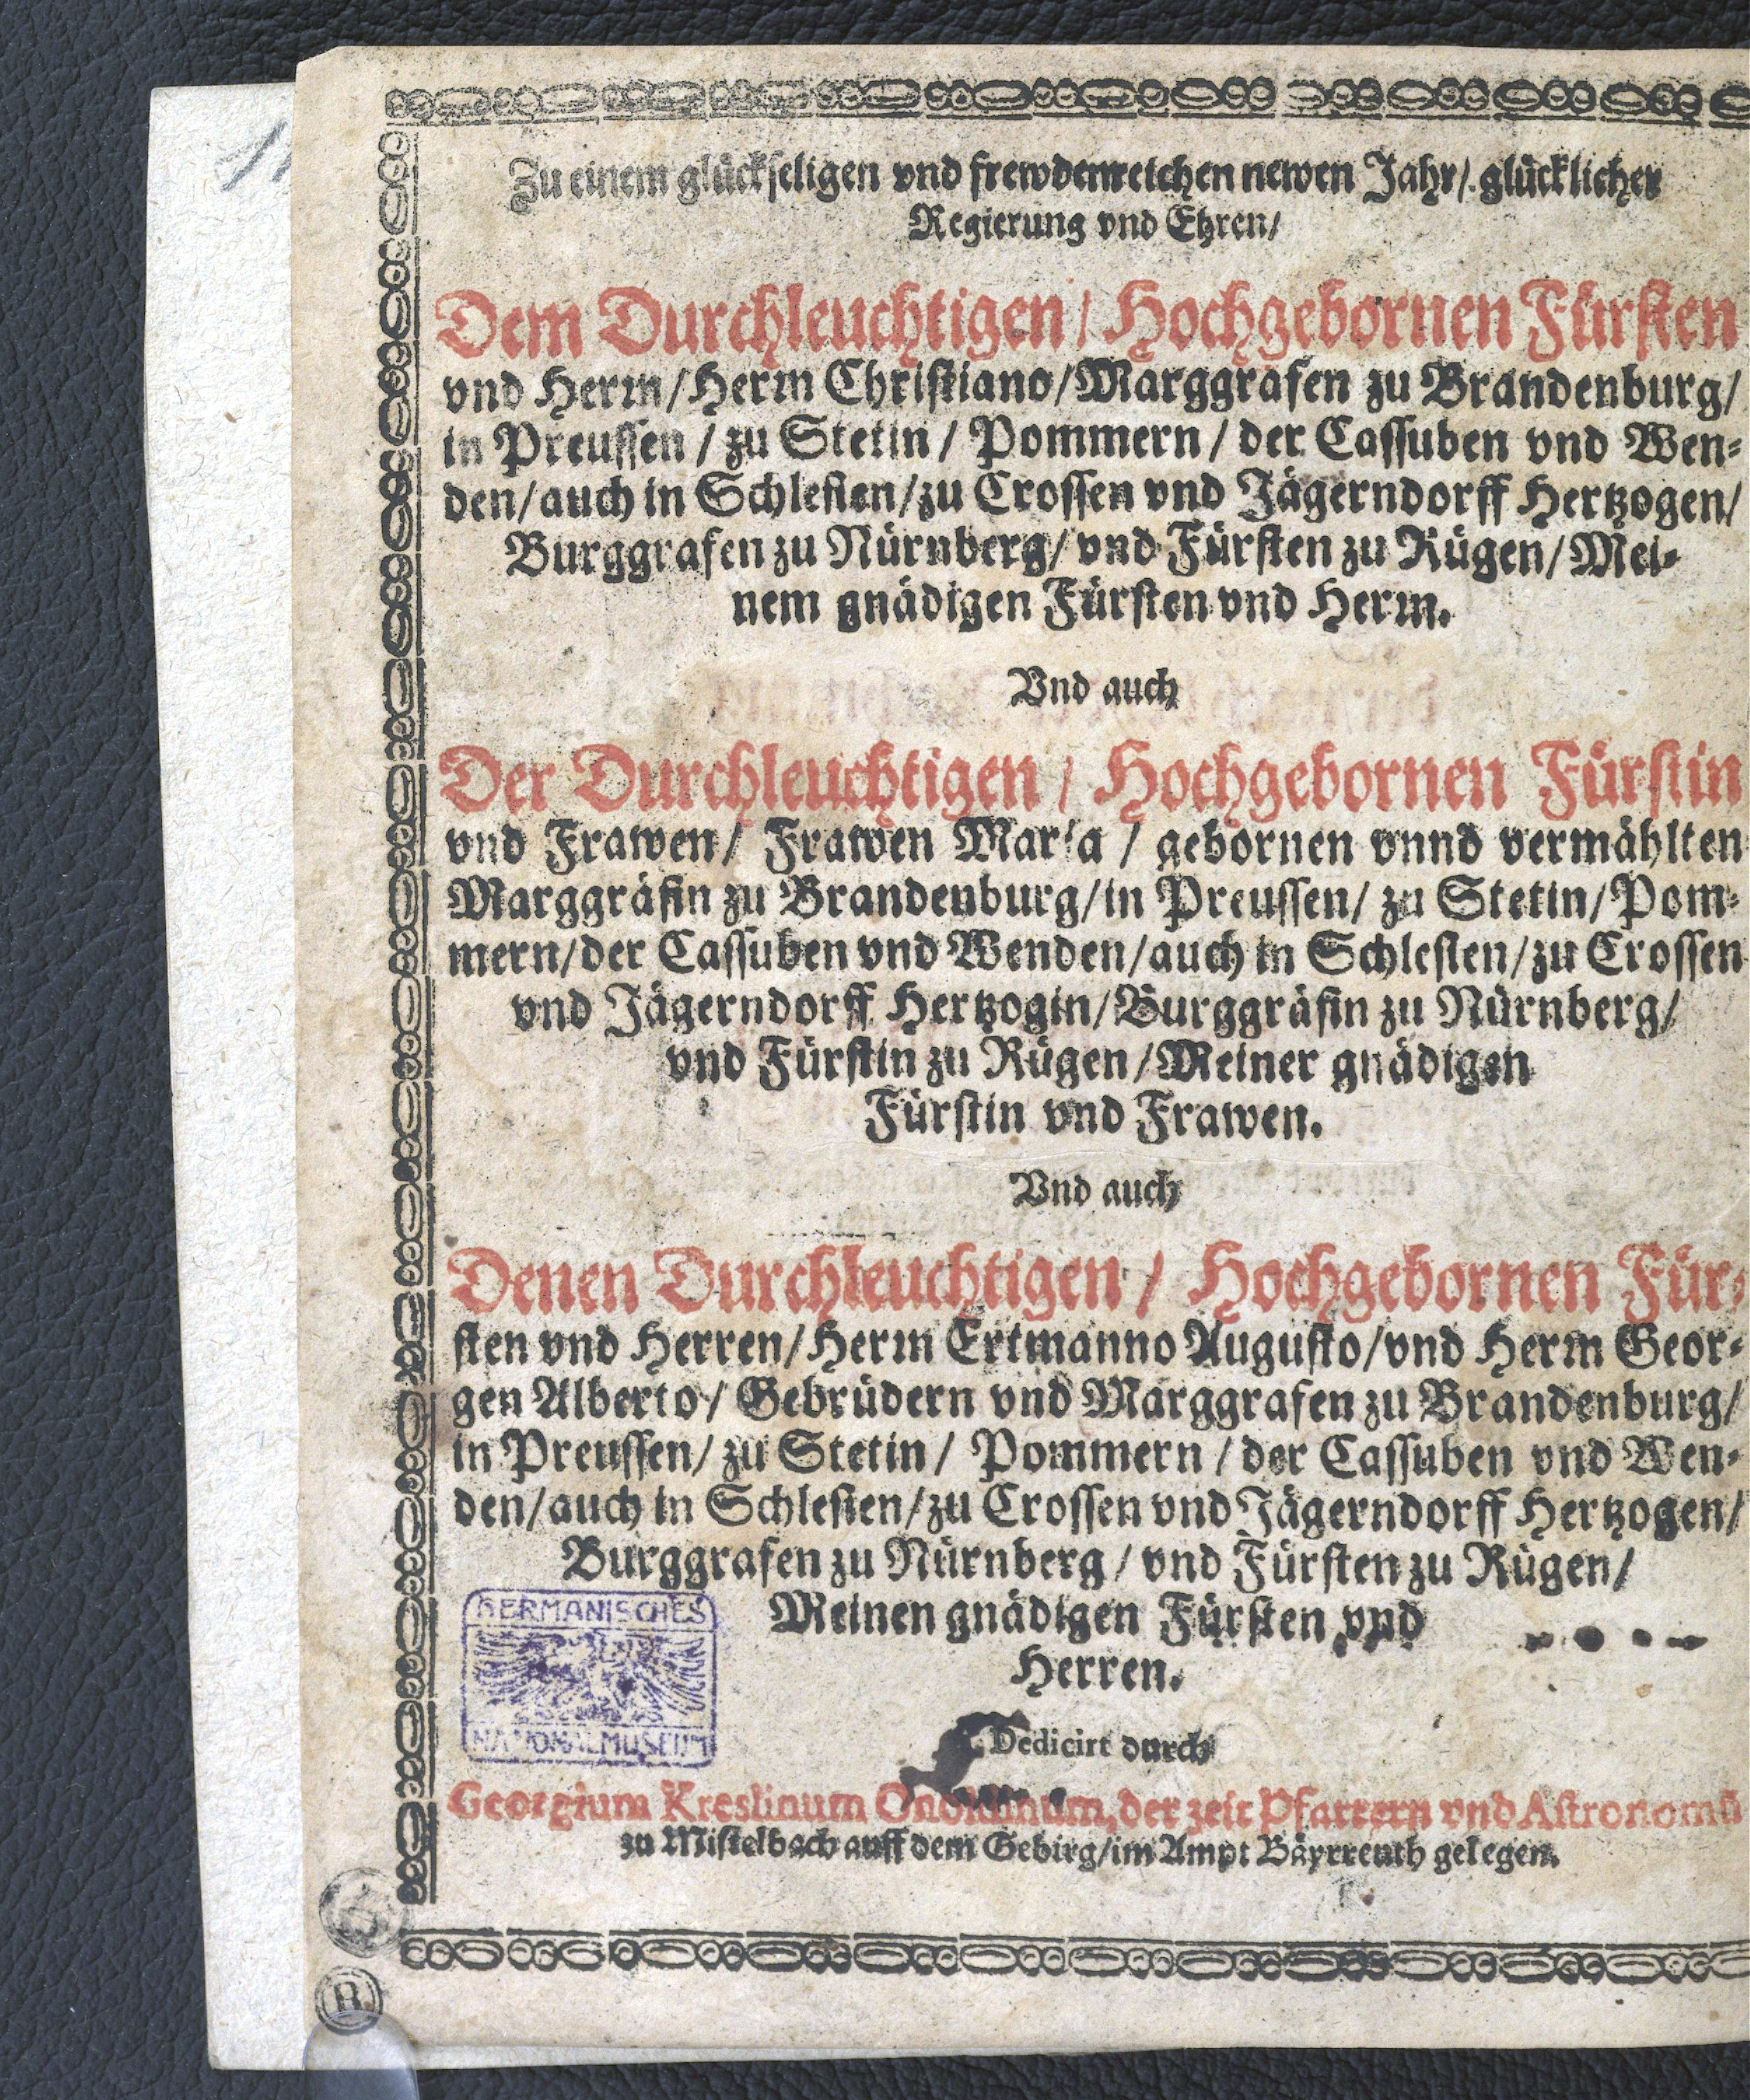 Zu einem glückseligen vnd frewdenreichen newen Jahr/ glücklicher
Regierung vnd Ehren/
Dem Durchleuchtigen / Hochgebornen Fürsten
vnd Herrn/Herrn Christiano/Marggrafen zu Brandenburg/
in Preussen / zu Stetin / Pommern / der Cassuben vnd Wen-
den/auch in Schlesien/zu Crossen vnd Jägerndorff Hertzogen/
Burggrafen zu Nürnberg/ vnd Fürsten zu Rügen/ Mei-
nem gnädigen Fürsten vnd Herrn.
Vnd auch
Der Durchleuchtigen / Hochgebornen Fürstin
vnd Frawen/ Frawen Maria / gebornen vnnd vermählten
Marggräfin zu Brandenburg/in Preussen/ zu Stetin/Pom-
mern/der Cassuben vnd Wenden/auch in Schlesien/zu Crossen
vnd Jägerndorff Hertzogin/Burggräfin zu Nürnberg/
vnd Fürstin zu Rügen/Meiner gnädigen
Fürstin vnd Frawen.
Vnd auch
Denen Durchleuchtigen / Hochgebornen Für-
sten vnd Herren/Herrn Ertmanno Augusto/vnd Herrn Geor-
gen Alberto/ Gebrüdern vnd Marggrafen zu Brandenburg/
in Preussen/ zu Stetin/ Pommern / der Cassuben vnd Wen-
den/auch in Schlesien/zu Crossen vnd Jägerndorff Hertzogen/
Burggrafen zu Nürnberg / vnd Fürsten zu Rügen/
Meinen gnädigen Fürsten vnd
Herren.
GERMANISCHES
NATIONALMUSEUM
Dedicirt durch
Georgium Kreslinum Onoldinum, der zeit Pfarrern vnd Astronomū
zu Mistelbach auff dem Gebirg/im Ampt Bäyrreuth gelegen.
B.